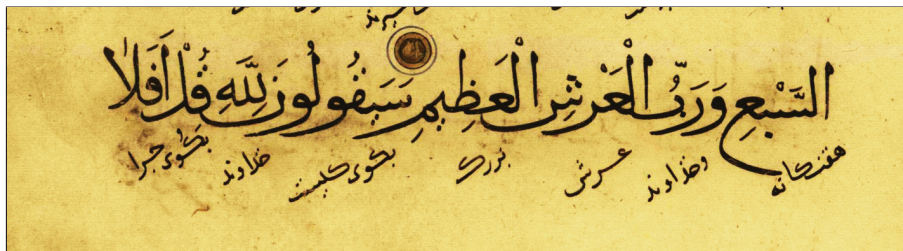 السَّبْعِ وَرَبُّ الْعَرْشِ الْعَظِيمِ سَيَقُولُونَ لِلَّهِ قُلْ أَفَلَا
هفتگانه وخذاوند عرش بزرگ بگوى خذاوند بگوى جرا